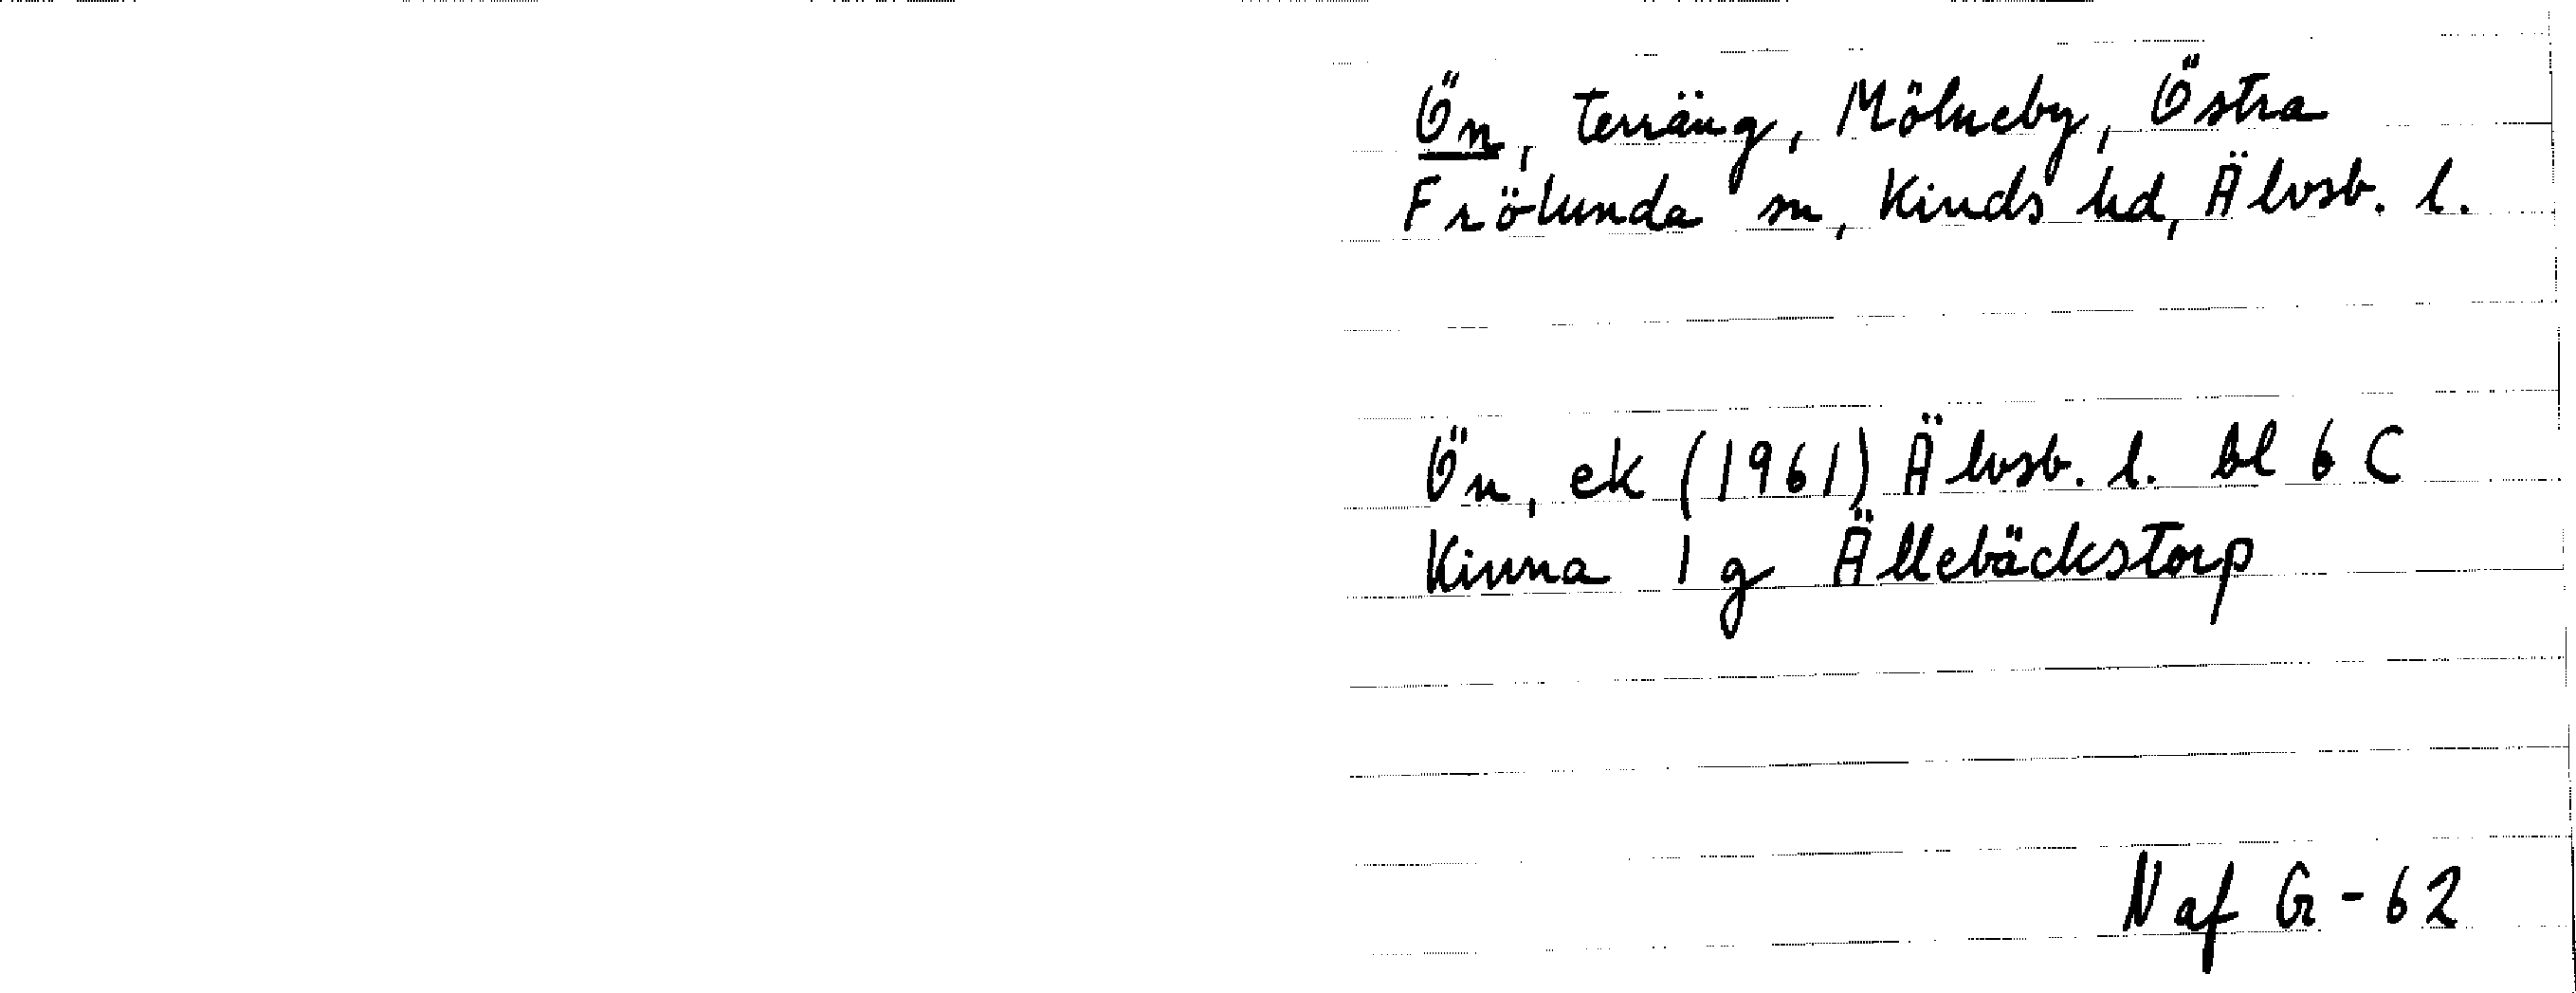 Ön, terräng, Mölneby, Östra
Frölunda sn, Kinds hd, Älvsb. l.
Ön, ek (1961) Älvsb. l. bl 6 C
Kinna 1 g Ällebäckstorp
N af G-62